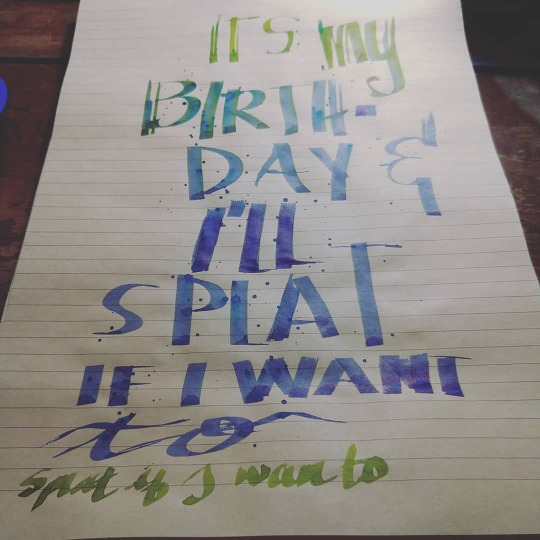 IT'S my
BIRTH-
DAY &
I'LL
SPLAT
IF I WANT
to
splat if I want to